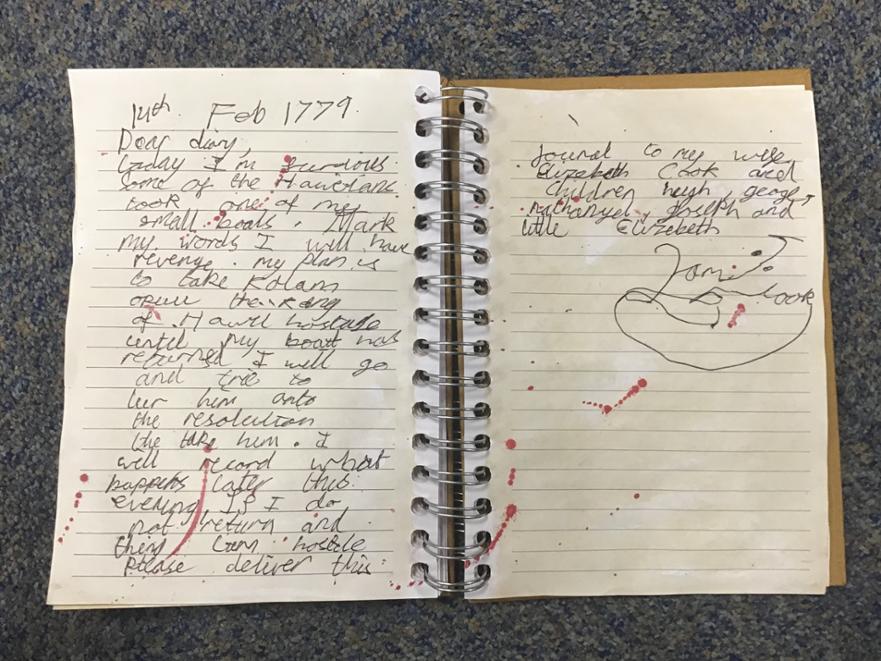 14th Feb 1779.
Dear diary,
today I'm furious
some of the Hawiians
took one of my
small boats. Mark
my words I will have
revenge. my plan is
to take Kalani
opuu the King
of Hawii hostage
until my boat has
returned I will go
and trie to
lur him onto
the resolution
the take him. I
will record what
happens later this
evening If I do
not return and
they turn hostile
Please deliver this
Journal to my wife
Elizabeth Cook and
children hugh george,
nathanyel, Joseph and
little Elizabeth
James
Cook